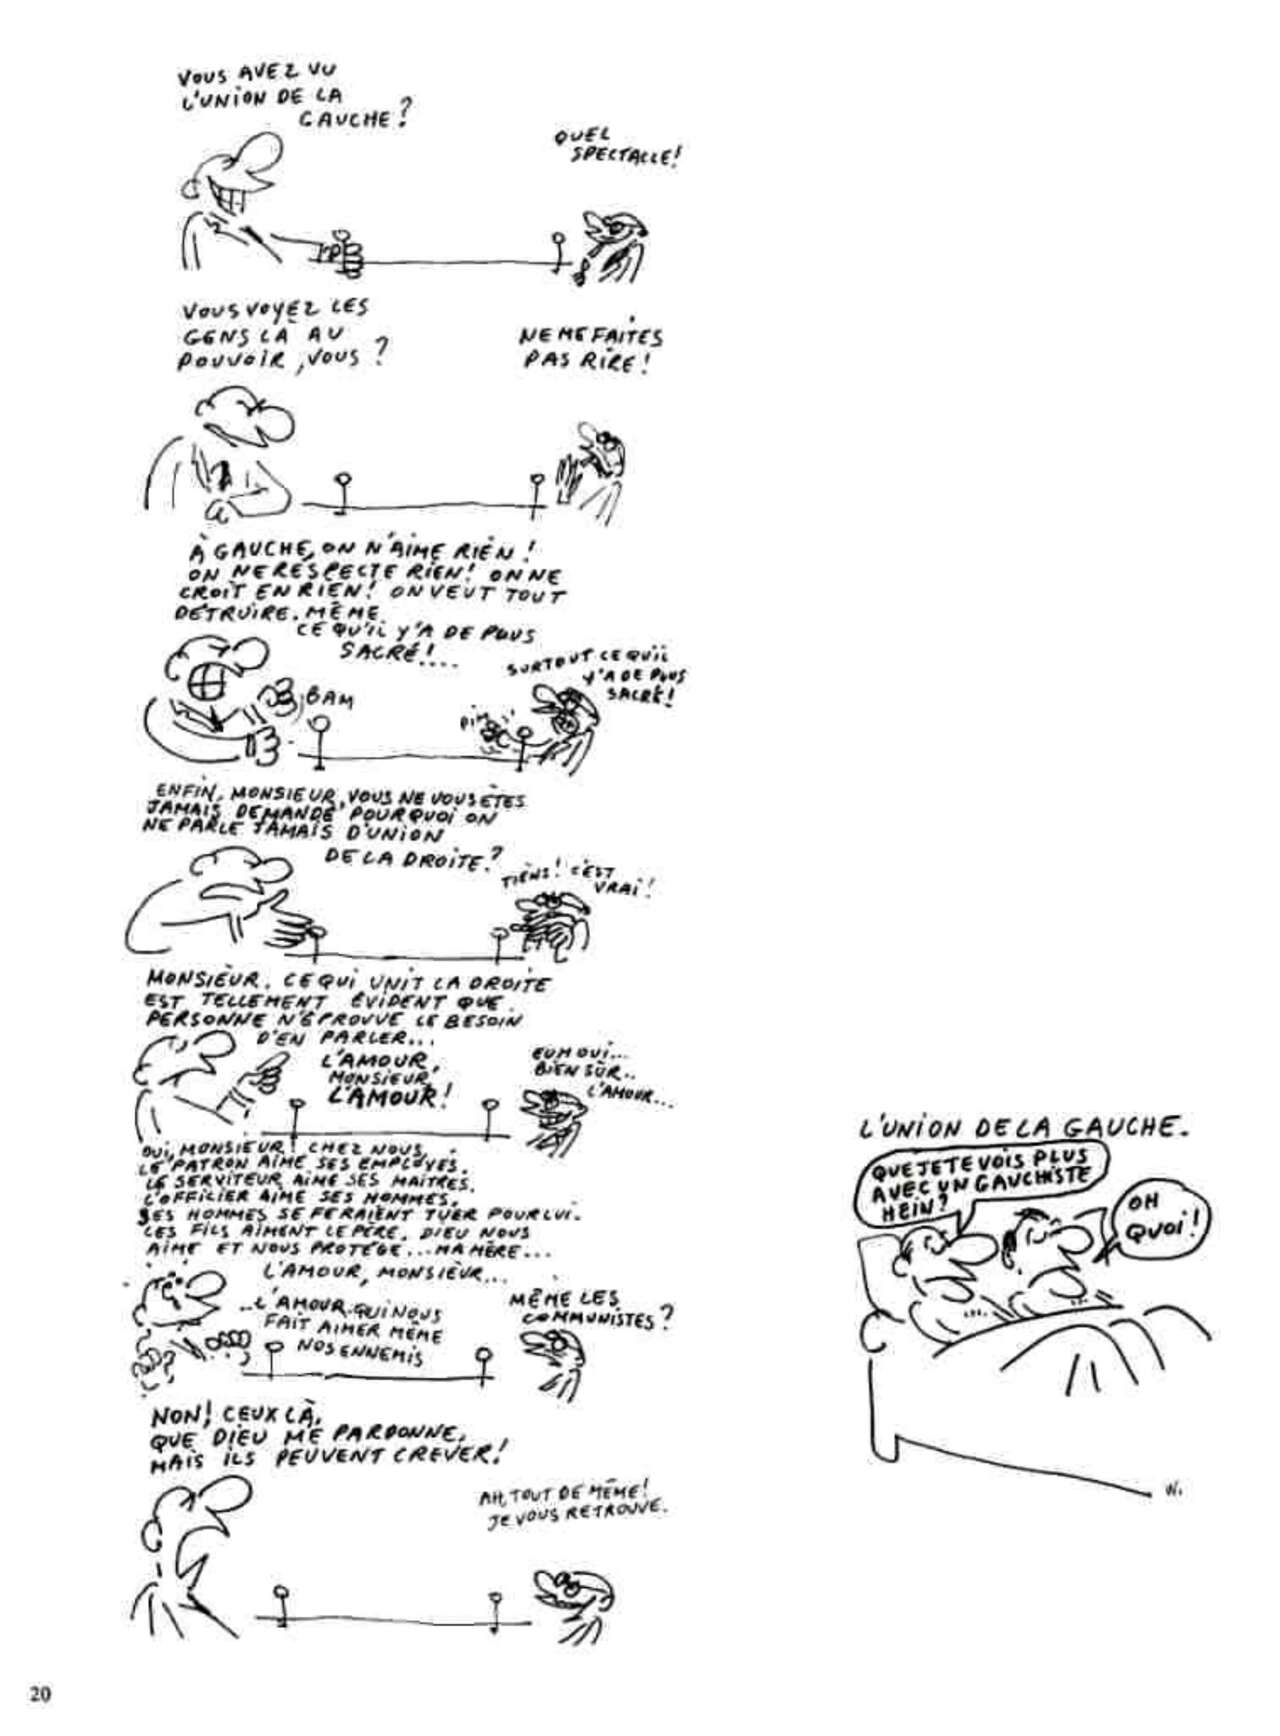 VOUS AVEZ VU
L'UNION DE LA
GAUCHE?
QUEL
SPECTACLE!
VOUS VOYEZ CES
GENS LÀ AU
POUVOIR, VOUS ?
NE ME FAITES
PAS RIRE!
À GAUCHE, ON N'AIME RIEN!
ON NE RESPECTE RIEN! ON NE
CROIT EN RIEN! ON VEUT TOUT
DÉTRUIRE. MÊME
CE QU'IL Y'A DE PLUS
SACRÉ!....
SURTOUT CE QU'IL
Y'A DE PLUS
SACRÉ!
BAM
PIM
ENFIN, MONSIEUR, VOUS NE VOUS ÊTES
JAMAIS DEMANDÉ POURQUOI ON
NE PARLE JAMAIS D'UNION
DE LA DROITE?
TIENS! C'EST
VRAI!
MONSIEUR, CE QUI UNIT LA DROITE
EST TELLEMENT ÉVIDENT QUE
PERSONNE N'ÉPROUVE LE BESOIN
D'EN PARLER...
L'AMOUR,
MONSIEUR,
L'AMOUR!
EUH OUI...
BIEN SÛR..
L'AMOUR...
OUI, MONSIEUR! CHEZ NOUS,
LE PATRON AIME SES EMPLOYÉS.
LE SERVITEUR AIME SES MAÎTRES.
L'OFFICIER AIME SES HOMMES.
SES HOMMES SE FERAIENT TUER POUR LUI.
LES FILS AIMENT LE PÈRE. DIEU NOUS
AIME ET NOUS PROTÈGE... MA MÈRE...
L'AMOUR, MONSIEUR...
..L'AMOUR QUI NOUS
FAIT AIMER MÊME
NOS ENNEMIS
MÊME LES
COMMUNISTES?
NON! CEUX LÀ,
QUE DIEU ME PARDONNE,
MAIS ILS PEUVENT CREVER!
AH, TOUT DE MÊME!
JE VOUS RETROUVE.
L'UNION DE LA GAUCHE.
QUE JE TE VOIS PLUS
AVEC UN GAUCHISTE
HEIN?
OH
QUOI!
W.
20